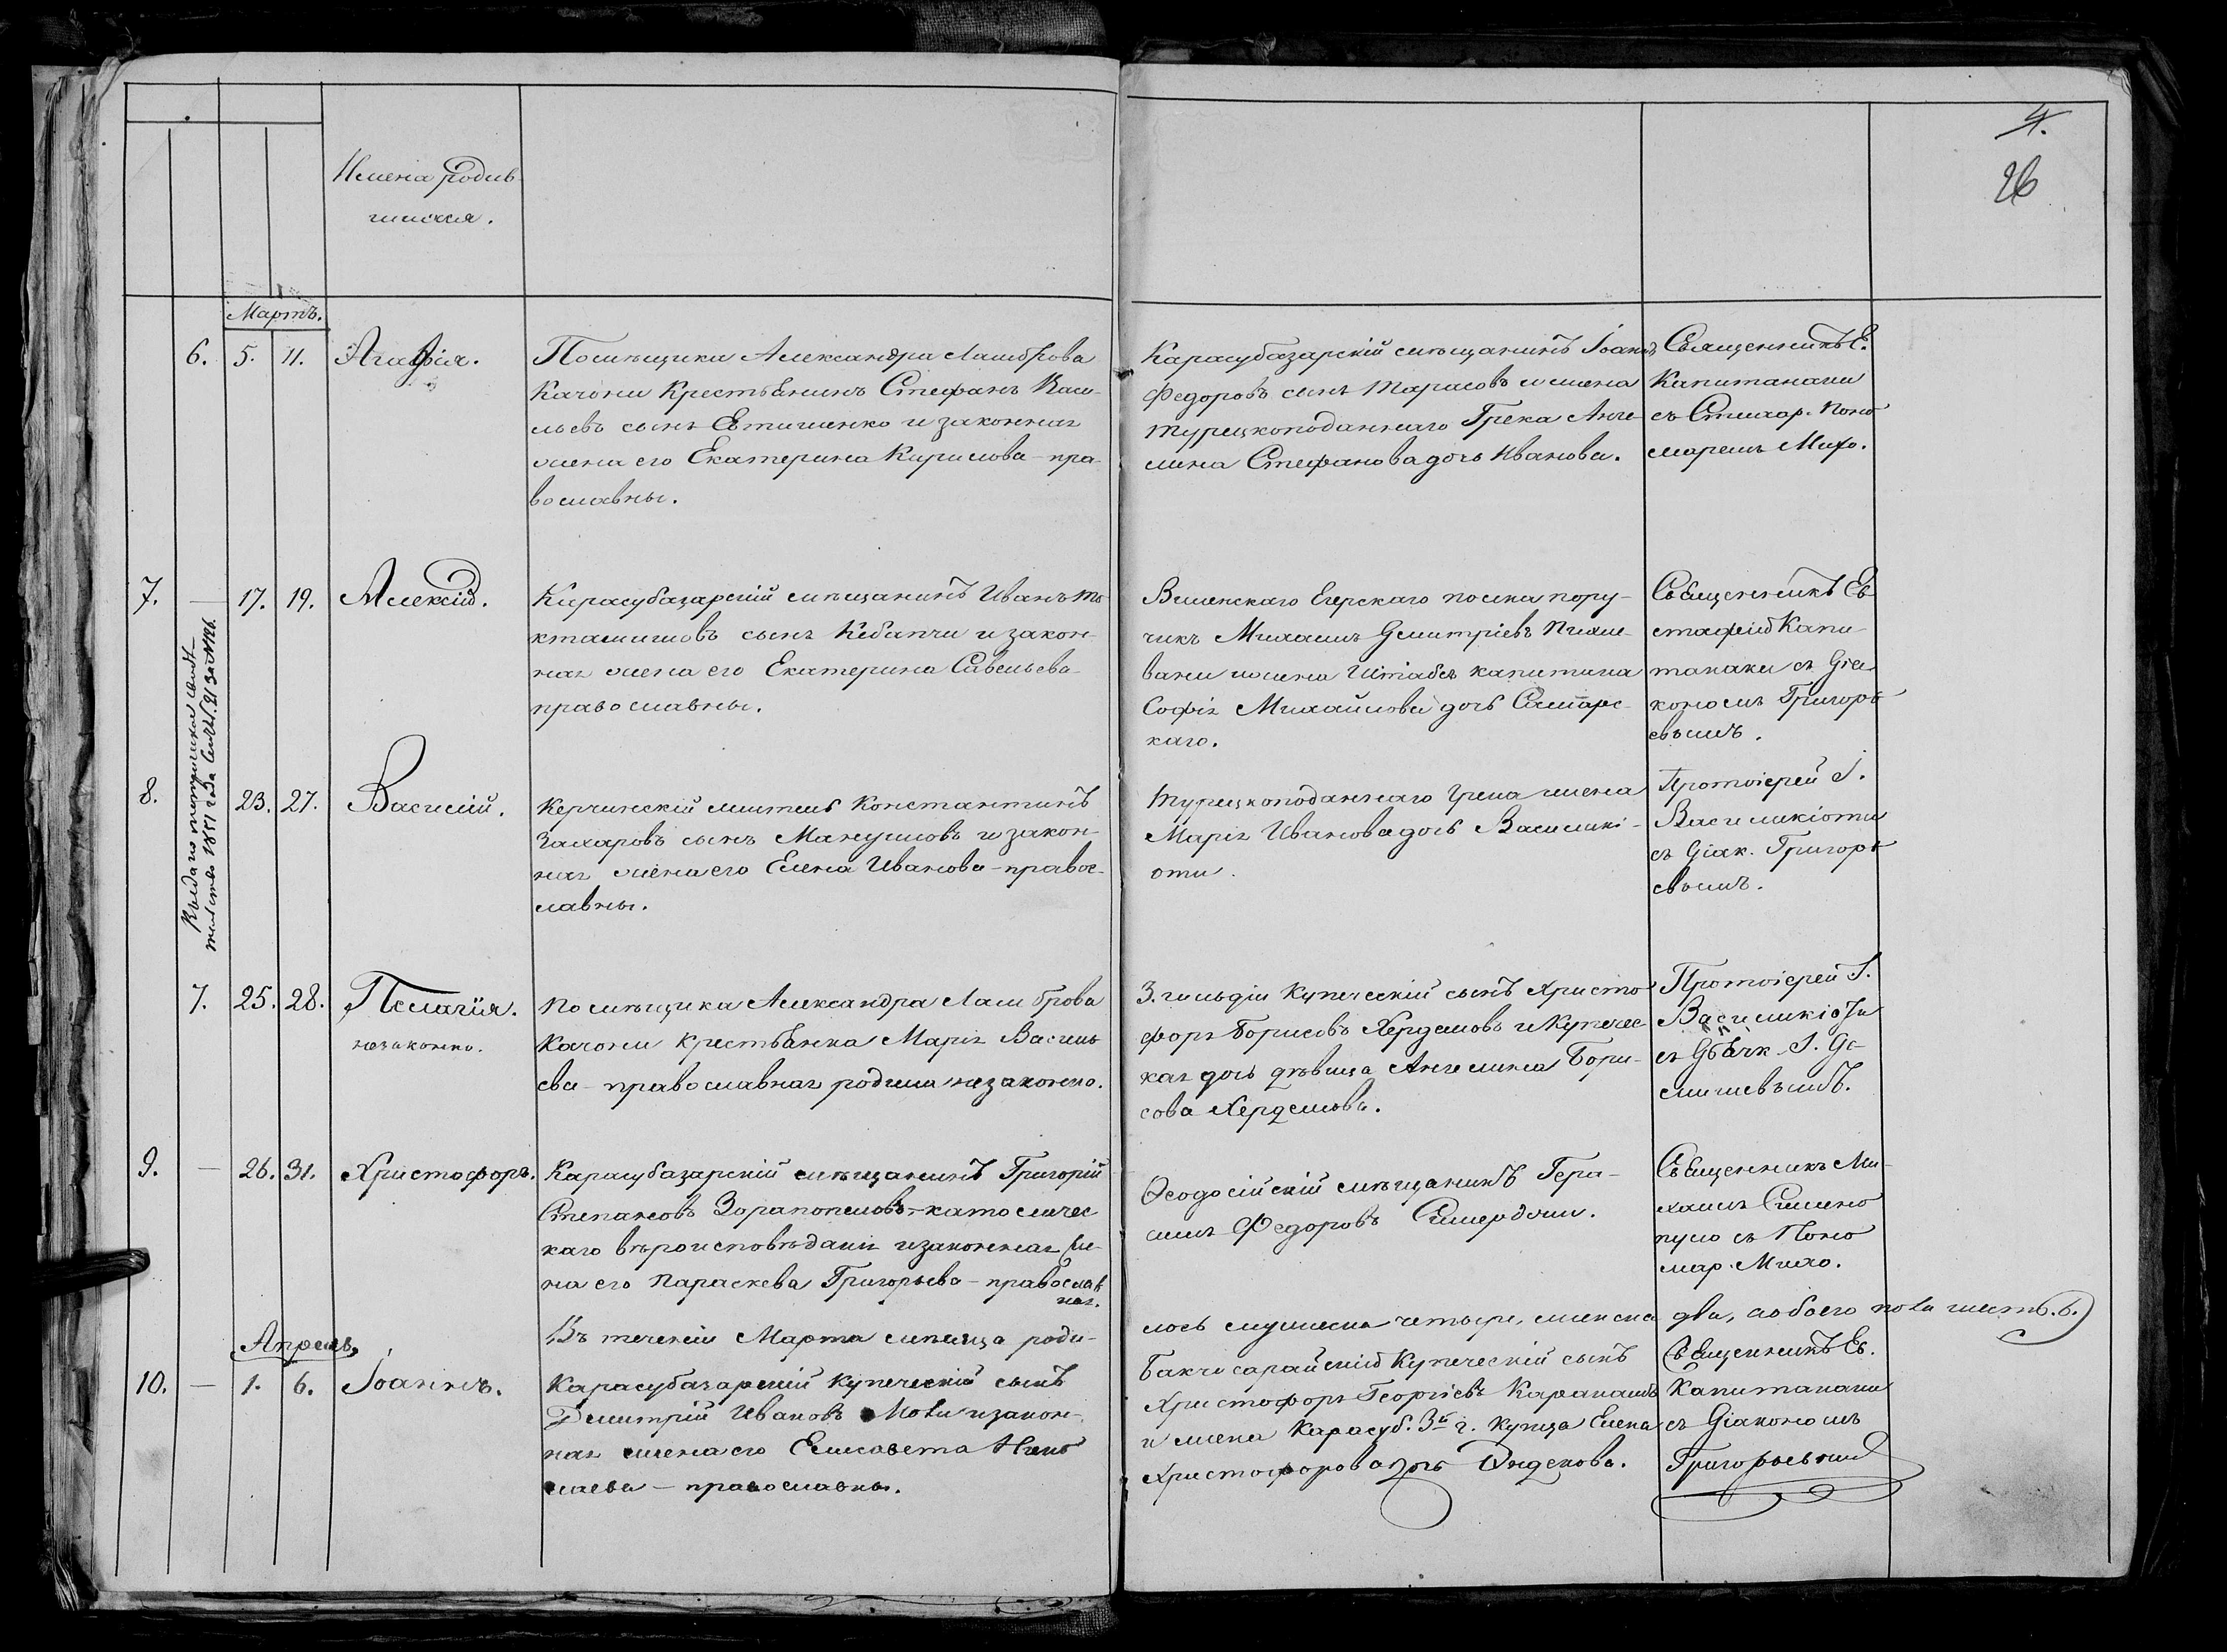 4.
26
Имена родив-
шихся.
Мартъ.
6. 5. 11. Агафія.
Помѣщика Александра Ламброва
Качони крестьянинъ Стефанъ Васи-
льевъ сынъ Евтушенко и законная
жена его Екатерина Кирилова – пра-
вославны.
Карасубазарскій мѣщанинъ Іоаннъ
Федоровъ сынъ Тарасовъ и жена
турецкоподаннаго Грека Анге-
лина Стефанова дочь Иванова.
Священникъ Е.
Капитанаки
съ Стихар. Поно
маремъ Михо.
7. — 17. 19. Алексій.
Карасубазарскій мѣщанинъ Иванъ То-
ктамишовъ сынъ Кебапчи и закон-
ная жена его Екатерина Савельева
православны.
Виленскаго Егерскаго полка пору-
чикъ Михаилъ Дмитріевъ
вани и жена Штабсъ капитана
Софія Михайлова дочь
каго.
Священникъ Ев-
стафій Капи-
танаки съ Діа-
кономъ Григорь-
евымъ.
8. 23. 27. Василій.
Керчинскій житель Константинъ
Захаровъ сынъ Мануиловъ и закон-
ная жена его Елена Иванова – правос-
лавны.
Турецкоподаннаго Грека жена
Марія Иванова дочь Василикі-
оти.
Протоіерей І.
Василикіоти
съ Діак. Григорь
евымъ.
7. 25. 28. Пелагія.
незаконно.
Помѣщика Александра Ламброва
Качони крестьянка Марія Василь
ева – православная родила незаконно.
3. гильдіи Купеческій сынъ Христо
форъ Борисовъ Хердемовъ и Купечес
кая дочь дѣвица Ангелина Бори-
сова Хердемова.
Протоіерей І.
Василикіоти
съ Дьячк. І. Де-
9. — 26. 31. Христофоръ.
Карасубазарскій мѣщанинъ Григорій
Степановъ Зорапопеловъ – католичес
каго вѣроисповѣданія и законная же-
на его Параскева Григорьева – православ
ная.
Ѳеодосійскій мѣщанинъ Гера-
симъ Федоровъ
Священникъ Ми-
хаилъ Симено
пуло съ Поно
мар. Михо.
Въ теченіи Марта мѣсяца роди-
лось мужеска четыре, женска два, а обоего пола шесть. 6.)
Апрель.
10. — 1. 6. Іоаннъ.
Карасубазарскій купеческій сынъ
Димитрій Ивановъ и закон-
ная жена его Елисавета Нико
лаева – православны.
Бакчисарайскій Купеческій сынъ
Христофоръ Георгіевъ Каракашъ
и жена Карасуб. 3й г. купца Елена
Христофорова дочь
Священникъ Ев.
Капитанаки
съ Діакономъ
Григорьевымъ
Выдано метрическое свидѣ-
тельство 1851 года Сент. 21 за №26.